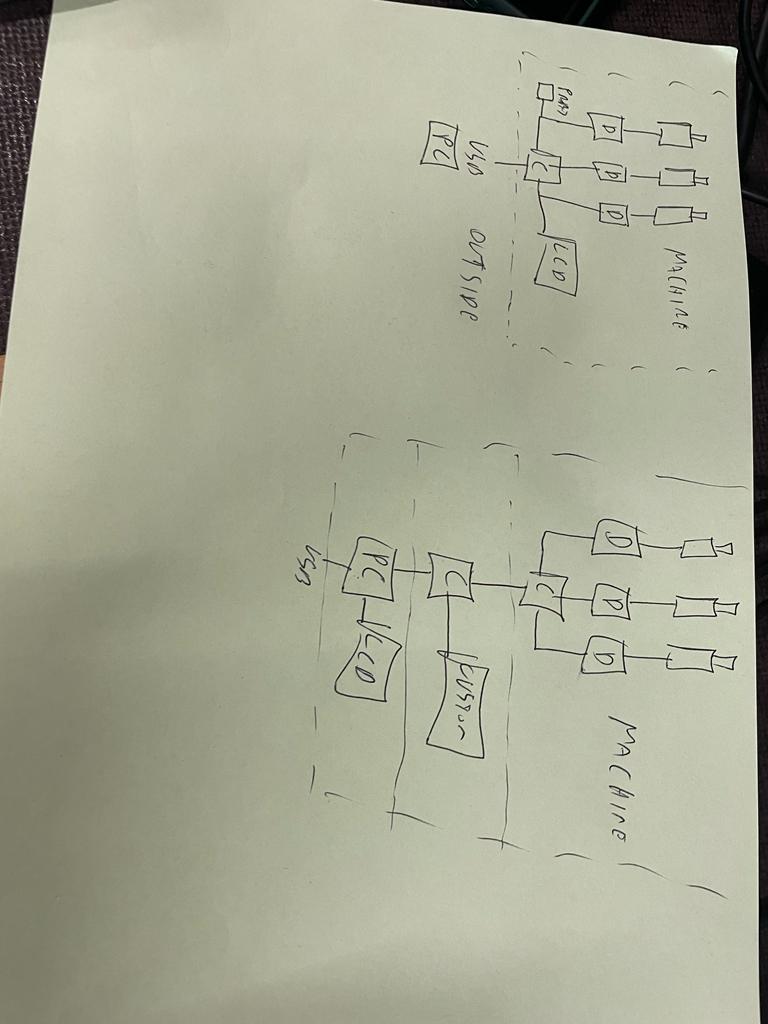 MACHINE
D
D
D
C
LCD
USB
OUTSIDE
PC
MACHINE
D
D
D
C
C
CUSTOM
PC
LCD
USB